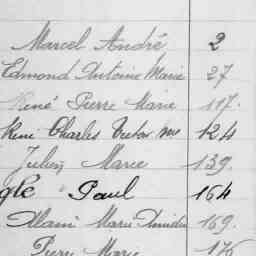 Marcel André 2
Edmond Antoine Marie 27
René Pierre Marie 117.
René Charles Victor 124
Julien Marie 139.
Paul 164
Alain Marie 169.
Pierre Marie 176